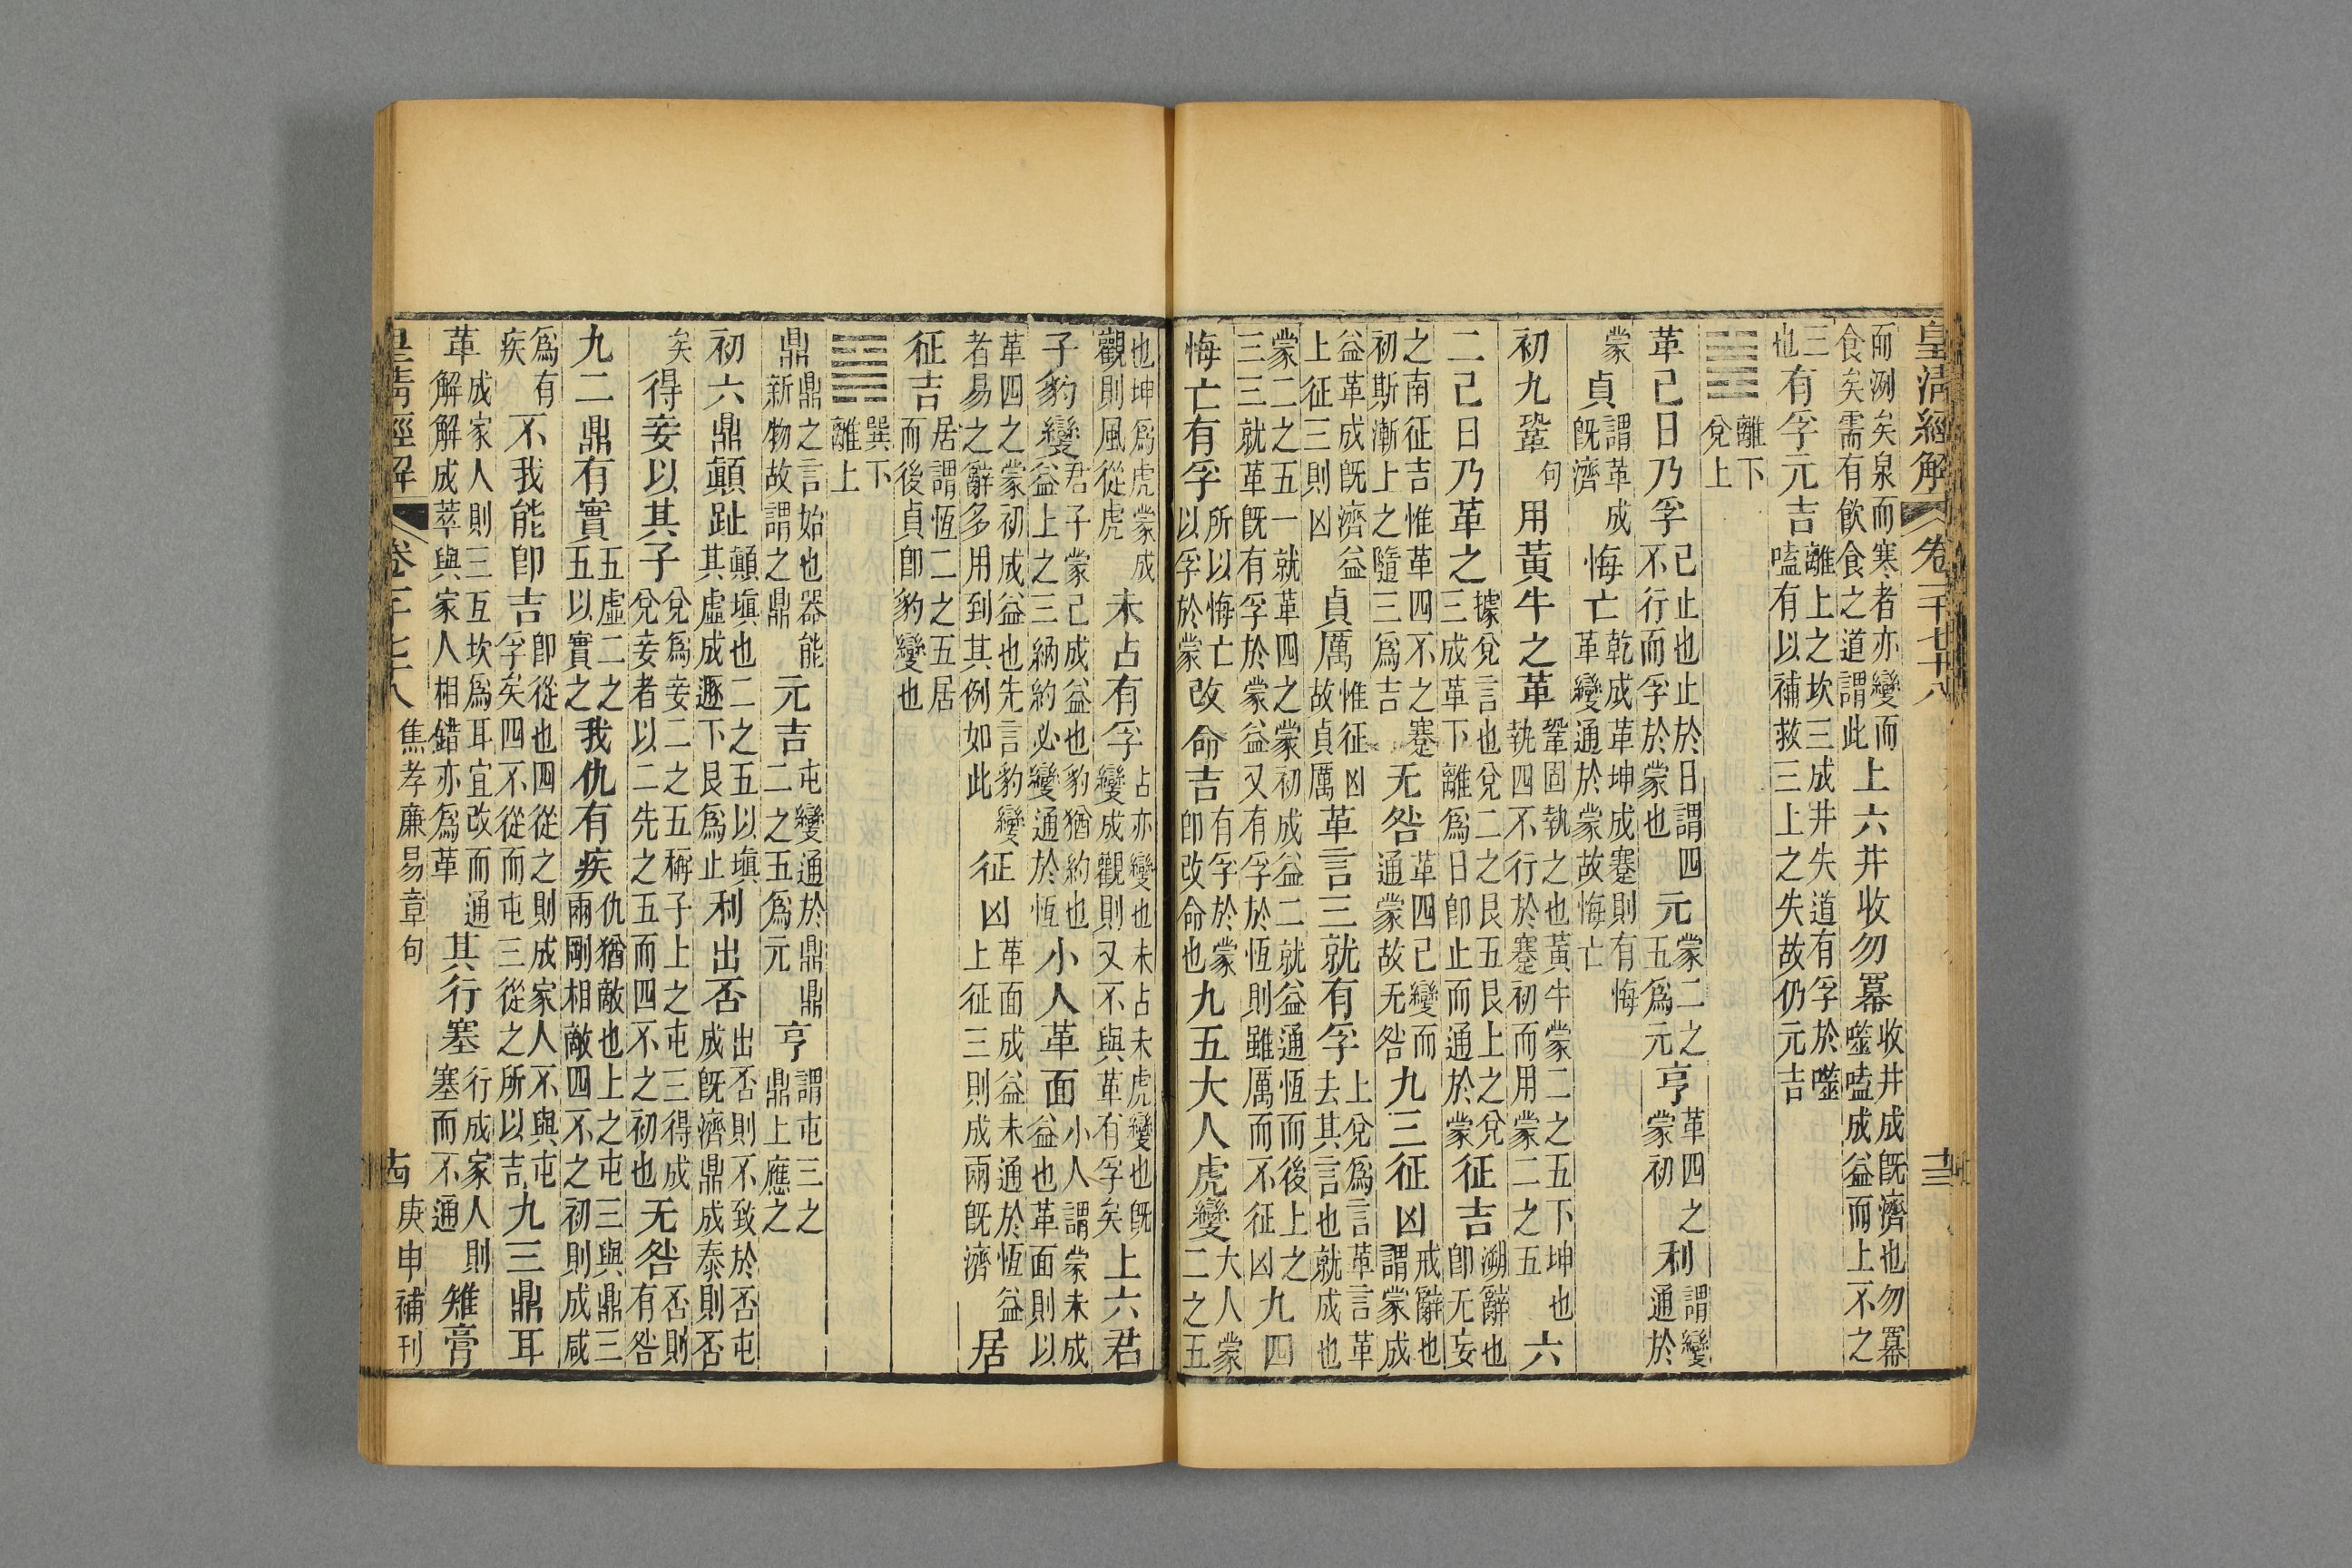 皇清經解 卷一千七十八 十三
而冽矣泉而寒者亦變而食矣需有飲食之道謂此上六井收勿幕收井成旣濟也勿幕噬嗑成益而上不之
三也有孚元吉離上之坎三成井失道有孚於噬嗑有以補救三上之失故仍元吉
離下兌上
革己日乃孚己止也止於日謂四不行而孚於蒙也元蒙二之五爲元亨革四之蒙初利謂變通於
蒙貞謂革成旣濟悔亡乾成革坤成蹇則有悔革變通於蒙故悔亡
初九鞏句用黃牛之革鞏固執之也黃牛蒙二之五下坤也執四不行於蹇初而用蒙二之五六
二己日乃革之據兌言也兌二之艮五艮上之兌三成革下離爲日卽止而通於蒙征吉溯辭也卽无妄
之南征吉惟革四不之蹇初斯漸上之隨三爲吉无咎革四己變而通蒙故无咎九三征凶戒辭也謂蒙成
益革成旣濟益上征三則凶貞厲惟征凶故貞厲革言三就有孚上兌爲言革言革去其言也就成也
蒙二之五一就革四之蒙初成益二就益通恆而後上之三三就革旣有孚於蒙益又有孚於恆則雖厲而不征凶九四
悔亡有孚所以悔亡以孚於蒙改命吉有孚於蒙卽改命也九五大人虎變大人蒙二之五
也坤爲虎蒙成觀則風從虎未占有孚占亦變也未占未虎變也旣變成觀則又不與革有孚矣上六君
子豹變君子蒙己成益也豹猶約也益上之三納約必變通於恆小人革面小人謂蒙未成益也革面則以
革四之蒙初成益也先言豹變者易之辭多用到其例如此征凶革面成益未通於恆益上征三則成兩旣濟居
征吉居謂恆二之五居而後貞卽豹變也
巽下離上
鼎鼎之言始也器能新物故謂之鼎元吉屯變通於鼎鼎二之五爲元亨謂屯三之鼎上應之
初六鼎顚趾顚塡也二之五以塡其虛成遯下艮爲止利出否出否則不致於否屯成旣濟鼎成泰則否
矣得妾以其子兌爲妾二之五稱子上之屯三得成兌妾者以二先之五而四不之初也无咎否則有咎
九二鼎有實五虛二之五以實之我仇有疾仇猶敵也上之屯三與鼎三兩剛相敵四不之初則成咸
爲有疾不我能卽吉卽從也四從之則成家人不與屯孚矣四不從而屯三從之所以吉九三鼎耳
革成家人則三互坎爲耳宜改而通解解成萃與家人相錯亦爲革其行塞行成家人則塞而不通雉膏
皇清經解 卷一千七十八 焦孝廉易章句 十四 庚申補刊